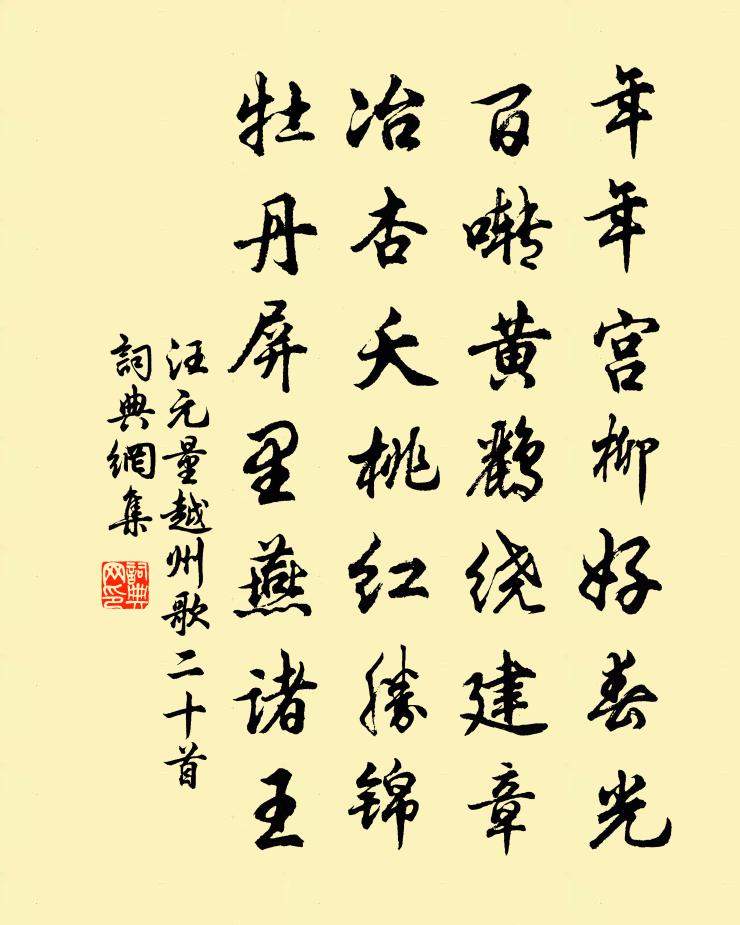 年年宫柳好春光
百啭黄鹂绕建章
冶杏夭桃红勝锦
牡丹屏里燕诸王
汪元量越州歌二十首
詞典網集
詞典网印